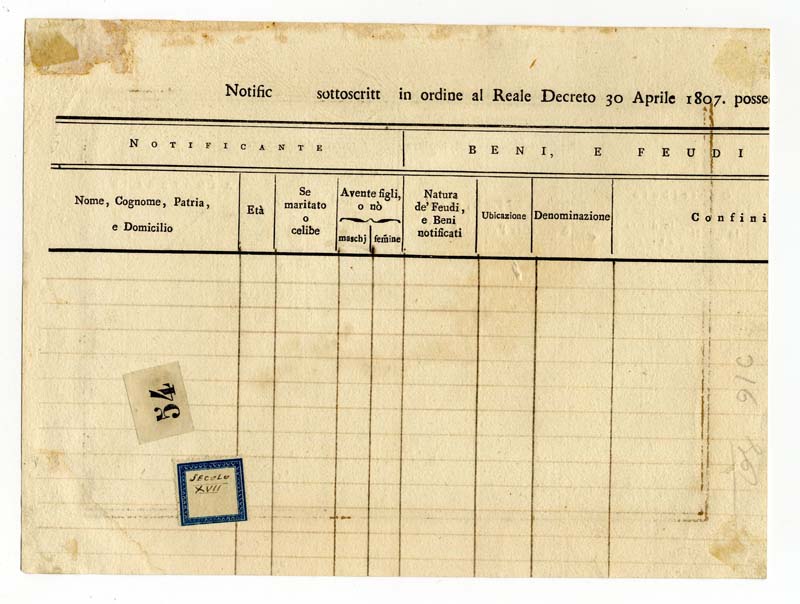 Notific sottoscritt in ordine al Reale Decreto 30 Aprile 1807. posse
NOTIFICANTE
BENI, E FEUDI
Nome, Cognome, Patria,
e Domicilio
Età
Se
maritato
o
celibe
Avente figli,
o nò
maschj
femine
Natura
de' Feudi,
e Beni
notificati
Ubicazione
Denominazione
Confini
54
SECOLO
XVII